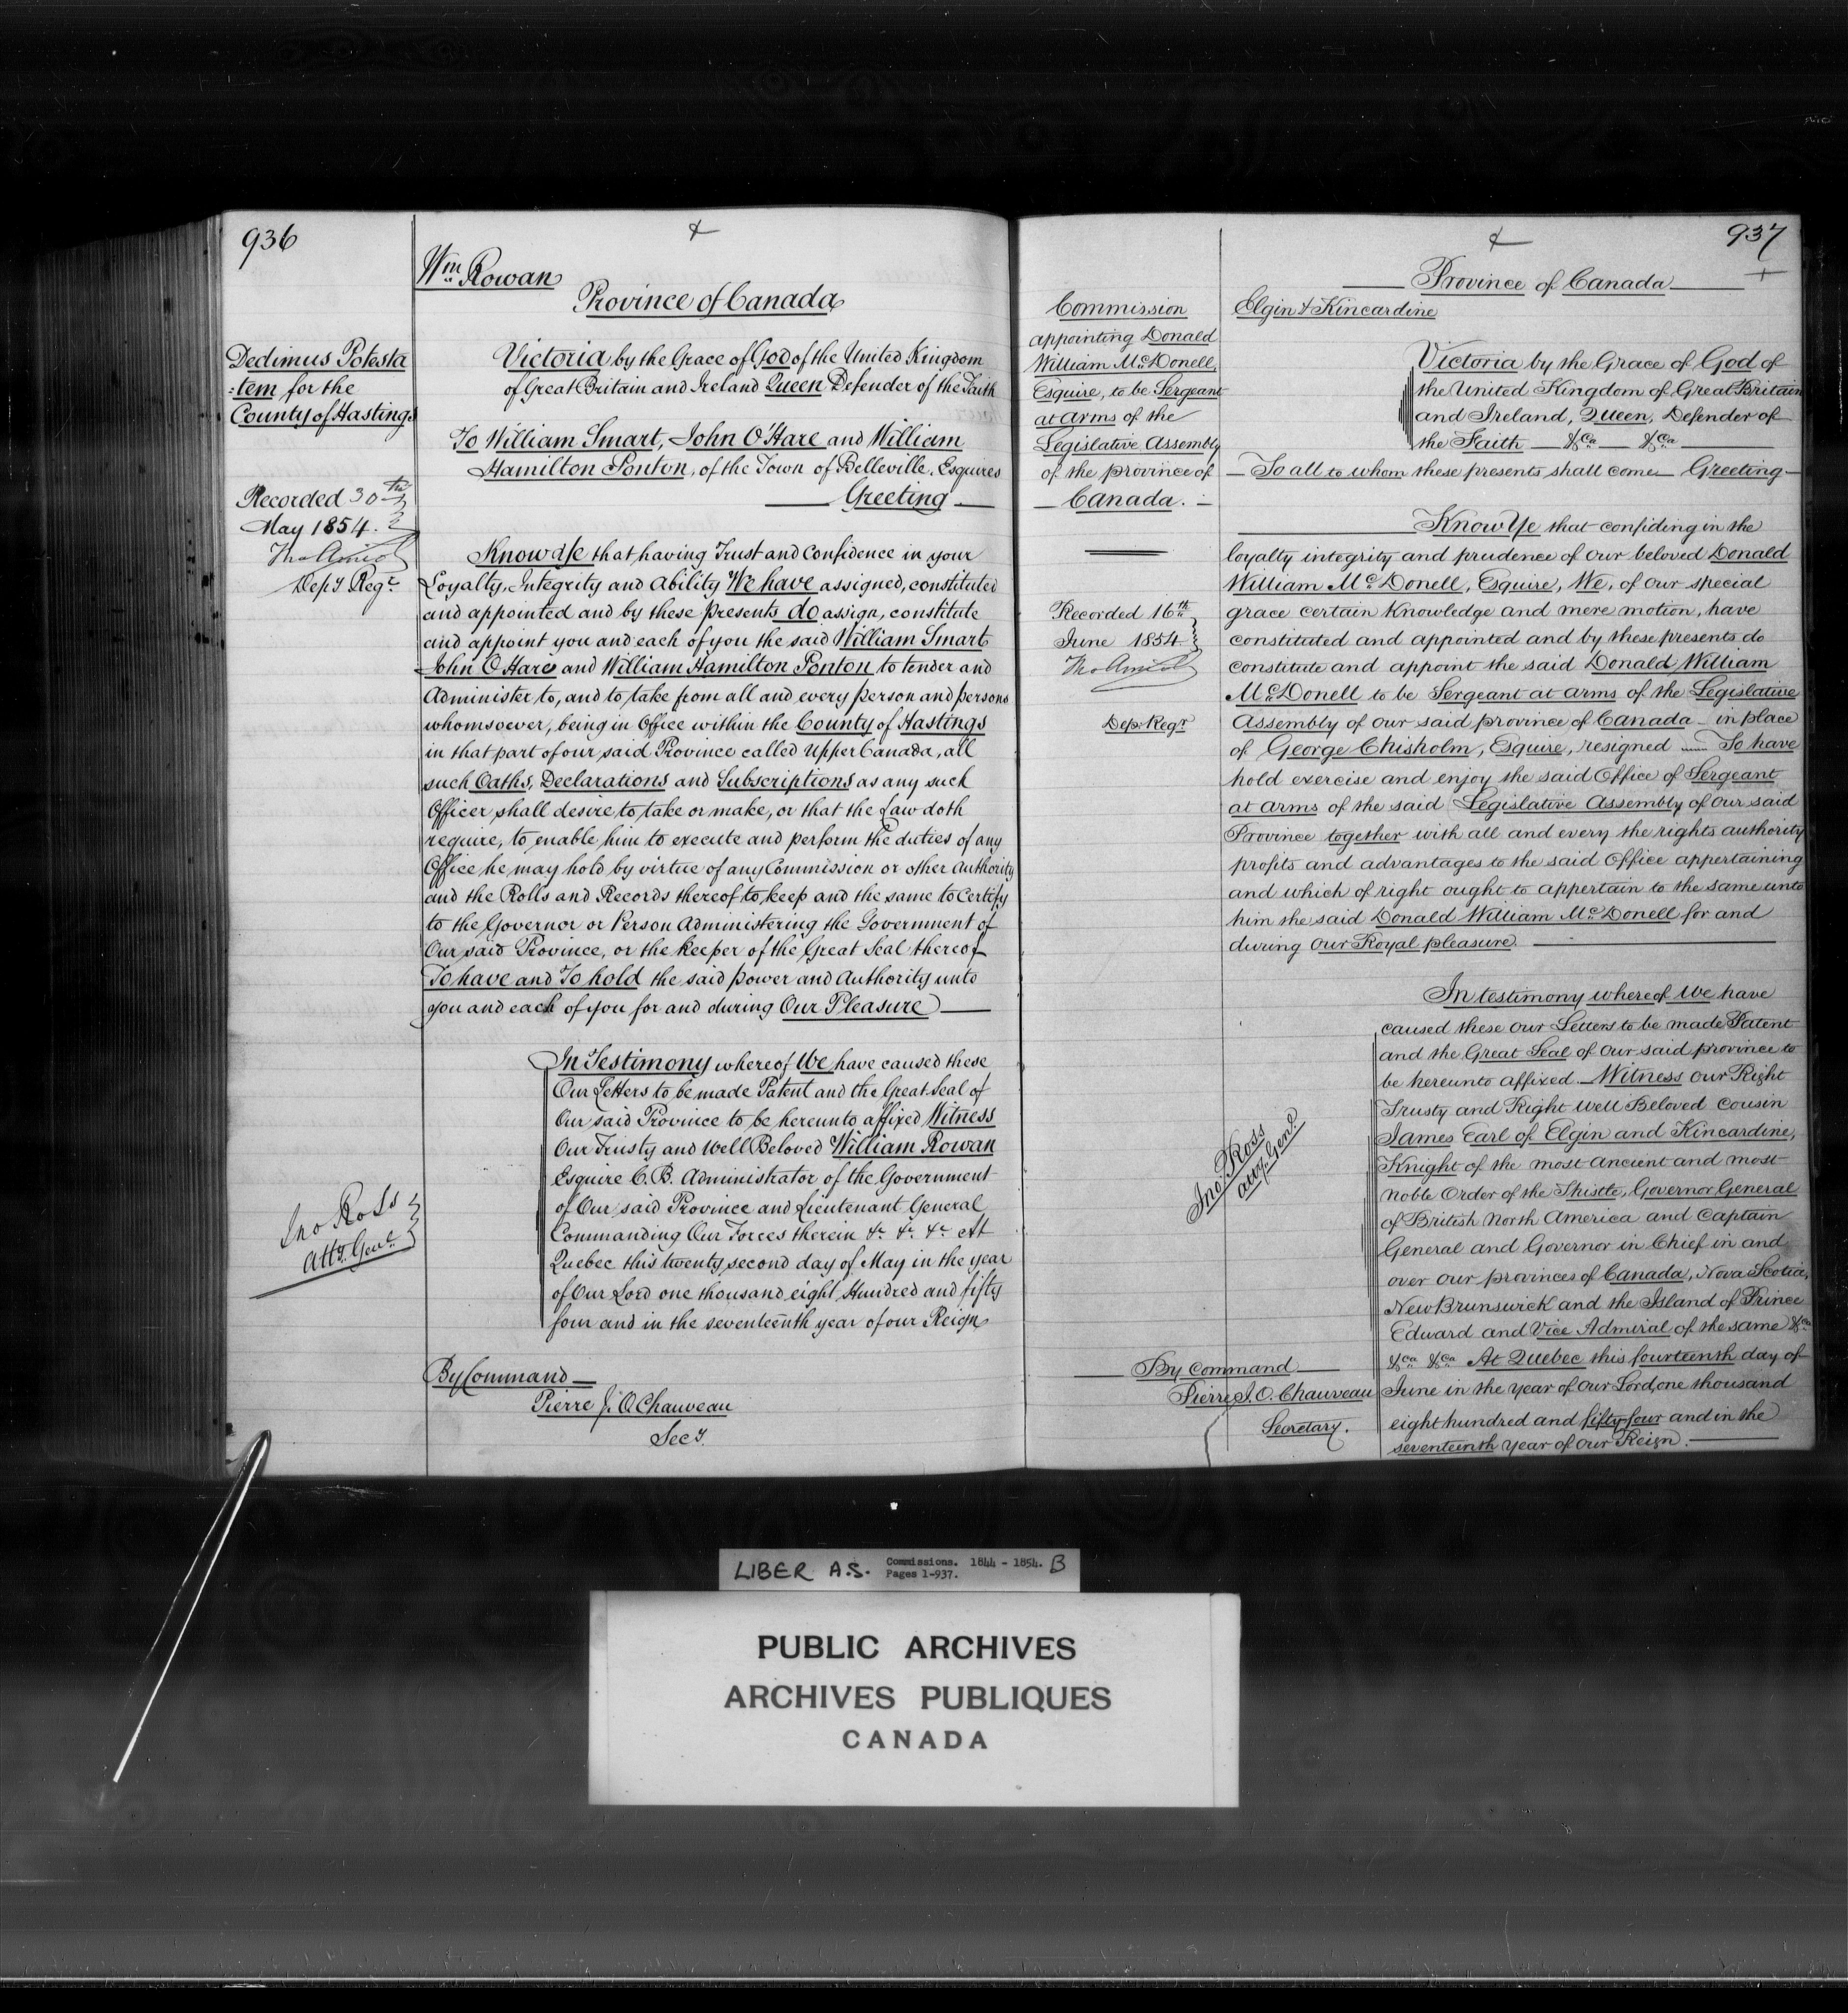 936
Wm Rowan
Province of Canada
Dedimus Potesta
:tem for the
County of Hastings
Recorded 30th
May 1854.
Tho Amiot
Depy Regr
Victoria by the Grace of God of the United Kingdom
of Great Britain and Ireland Queen Defender of the Faith
To William Smart, John O'Hare and William
Hamilton Ponton, of the Town of Belleville, Esquires
Greeting
Know Ye that having Trust and Confidence in your
Loyalty, Integrity and Ability We have assigned, constituted
and appointed and by these presents do assign, constitute
and appoint you and each of you the said William Smart
John O'Hare and William Hamilton Ponton to tender and
Administer to, and to take from all and every person and persons
whomsoever, being in Office within the County of Hastings
in that part of our said Province called Upper Canada, all
such Oaths, Declarations and Subscriptions as any such
Officer shall desire to take or make, or that the Law doth
require, to enable him to execute and perform the duties of any
Office he may hold by virtue of any Commission or other Authority
and the Rolls and Records thereof to keep and the same to Certify
to the Governor or Person Administering the Government of
Our said Province, or the Keeper of the Great Seal thereof
To have and To hold the said power and Authority unto
you and each of you for and during Our Pleasure
In Testimony whereof We have caused these
Our Letters to be made Patent and the Great Seal of
Our said Province to be hereunto affixed Witness
Our Trusty and Well Beloved William Rowan
Esquire C.B. Administrator of the Government
of Our said Province and Lieutenant General
Commanding Our Forces therein &c &c &c At
Quebec this twenty second day of May in the year
of Our Lord one thousand eight Hundred and fifty
four and in the seventeenth year of our Reign
Jno Ross
Atty. Genl
By Command
Pierre J. O. Chauveau
Secy.
937
Province of Canada
Elgin & Kincardine
Commission
appointing Donald
William McDonell,
Esquire, to be Sergeant
at arms of the
Legislative Assembly
of the province of
Canada.
Recorded 16th
June 1854
Tho Amiot
Dep. Regr
Victoria by the Grace of God of
the United Kingdom of Great Britain
and Ireland, Queen, Defender of
the Faith &ca &ca
To all to whom these presents shall come Greeting
Know Ye that confiding in the
loyalty integrity and prudence of our beloved Donald
William McDonell, Esquire, We, of our special
grace certain Knowledge and mere motion, have
constituted and appointed and by these presents do
constitute and appoint the said Donald William
McDonell to be Sergeant at arms of the Legislative
Assembly of our said province of Canada in place
of George Chisholm, Esquire, resigned To have
hold exercise and enjoy the said Office of Sergeant
at arms of the said Legislative Assembly of our said
Province together with all and every the rights authority
profits and advantages to the said Office appertaining
and which of right ought to appertain to the same unto
him the said Donald William McDonell for and
during Our Royal pleasure.
In testimony whereof We have
caused these our Letters to be made Patent
and the Great Seal of our said province to
be hereunto affixed. Witness Our Right
Trusty and Right Well Beloved Cousin
James Earl of Elgin and Kincardine,
Knight of the most Ancient and most
noble Order of the Thistle, Governor General
of British North America and Captain
General and Governor in Chief in and
over our provinces of Canada, Nova Scotia,
New Brunswick and the Island of Prince
Edward and Vice Admiral of the same &ca
&ca &ca At Quebec this fourteenth day of
June in the year of our Lord, one thousand
eight hundred and fifty four and in the
seventeenth year of our Reign.
Jno. Ross
atty. Genl.
By Command
Pierre J. O. Chauveau
Secretary.
LIBER A.S. Commissions. 1844 - 1854. B
Pages 1-937.
PUBLIC ARCHIVES
ARCHIVES PUBLIQUES
CANADA